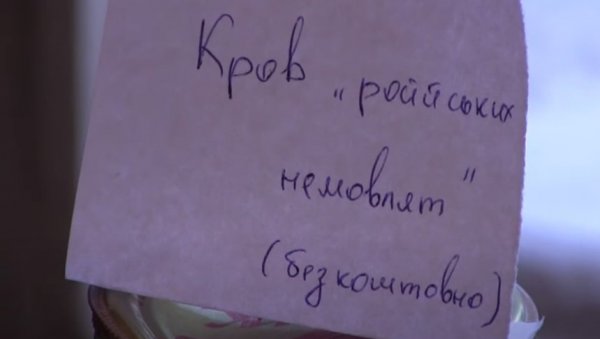 Кров „роййських
немовлят"
(безкоштовно)